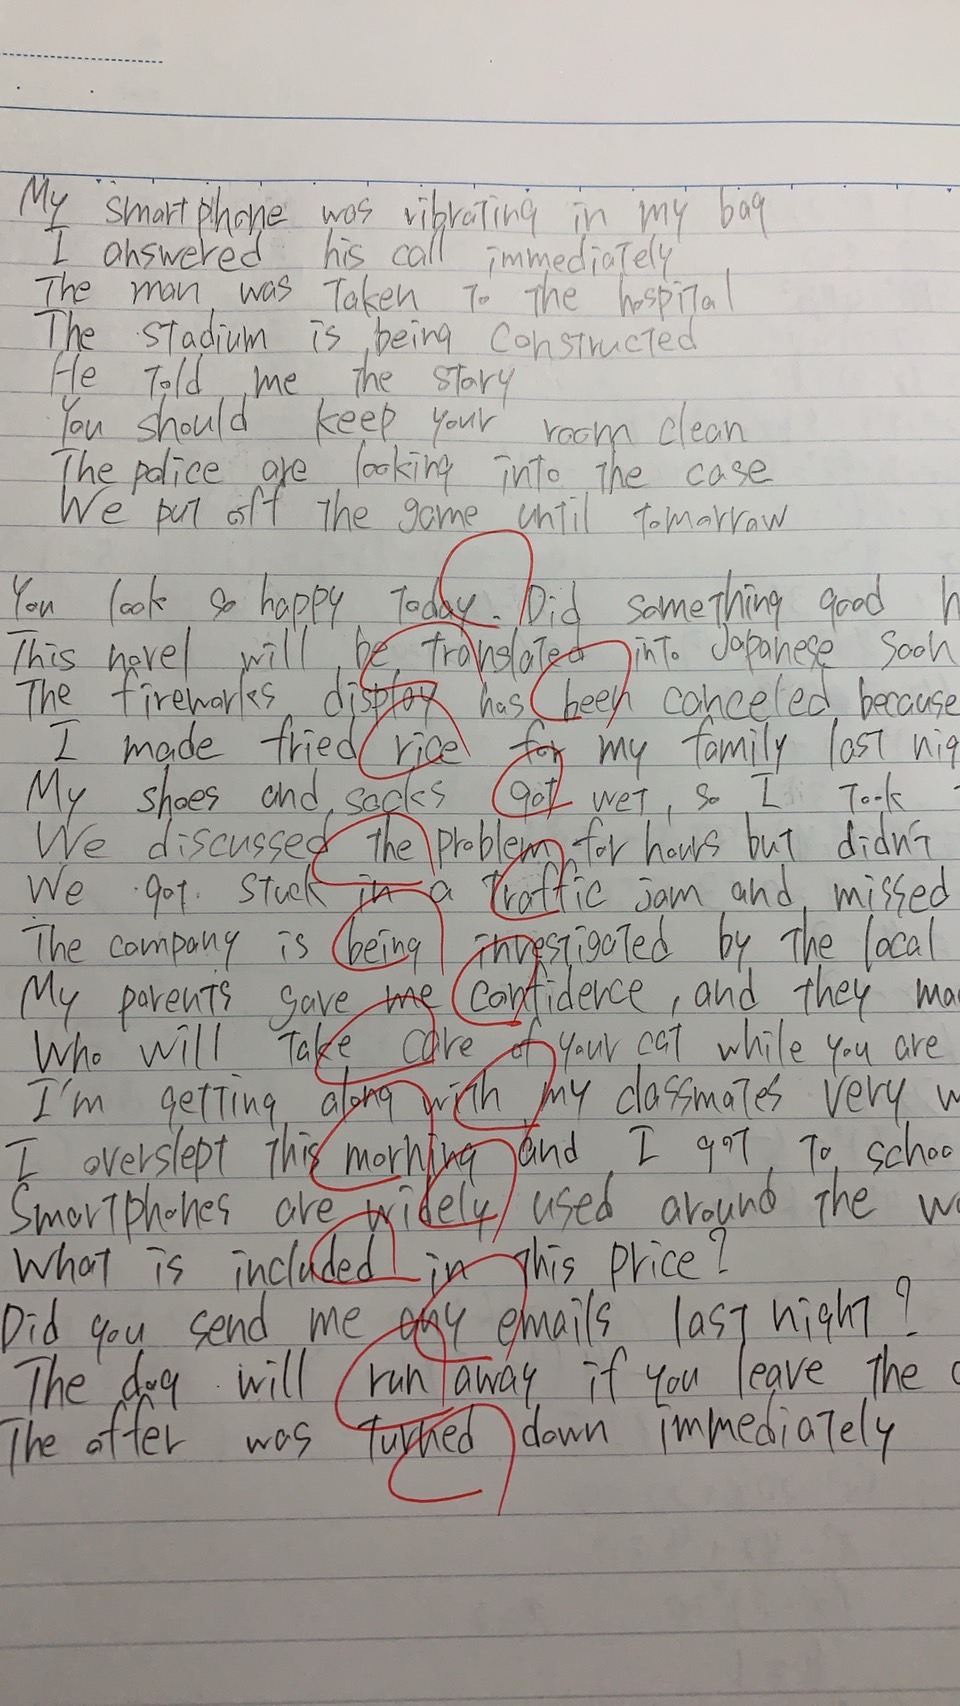 My smartphone was vibrating in my bag
I answered his call immediately
The man was taken to the hospital
The stadium is being constructed
He told me the story
You should keep your room clean
The police are looking into the case
We put off the game until tomorrow
You look so happy today. Did something good h
This novel will be translated into Japanese soon
The fireworks display has been canceled because
I made fried rice for my family last nig
My shoes and socks got wet, so I took
We discussed the problem for hours but didn't
We got stuck in a traffic jam and missed
The company is being investigated by the local
My parents gave me confidence, and they ma
Who will take care of your cat while you are
I'm getting along with my classmates very w
I overslept this morning and I got to schoo
Smartphones are widely used around the wo
What is included in this price?
Did you send me any emails last night?
The dog will run away if you leave the
The offer was turned down immediately